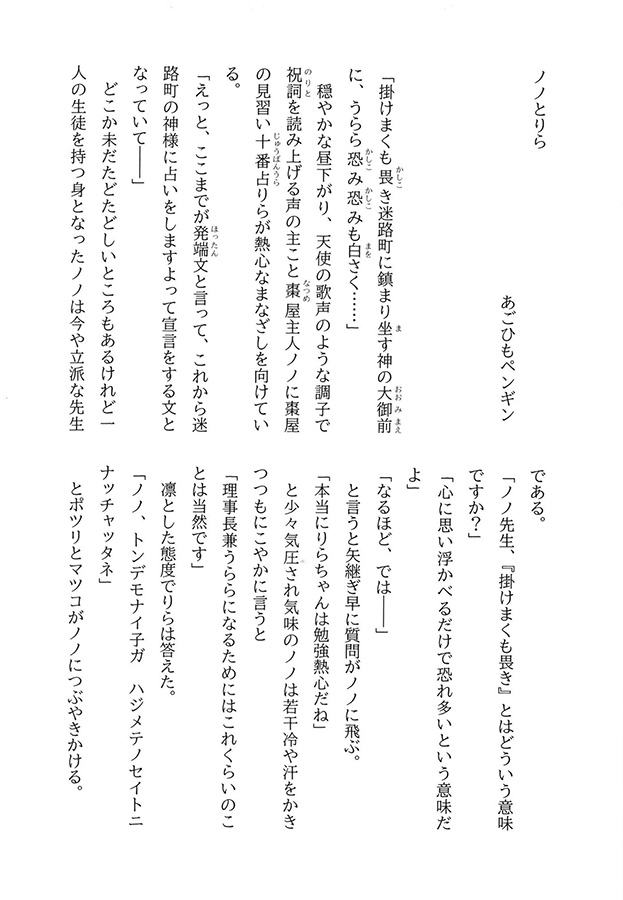 ノノとりら
あごひもペンギン
「掛けまくも畏き迷路町に鎮まり坐す神の大御前
に、うらら恐み恐みも白さく……」
　穏やかな昼下がり、天使の歌声のような調子で
祝詞を読み上げる声の主こと棗屋主人ノノに棗屋
の見習い十番占りらが熱心なまなざしを向けてい
る。
「えっと、ここまでが発端文と言って、これから迷
路町の神様に占いをしますよって宣言をする文と
なっていて――」
　どこか未だたどたどしいところもあるけれど一
人の生徒を持つ身となったノノは今や立派な先生
である。
「ノノ先生、『掛けまくも畏き』とはどういう意味
ですか？」
「心に思い浮かべるだけで恐れ多いという意味だ
よ」
「なるほど、では――」
　と言うと矢継ぎ早に質問がノノに飛ぶ。
「本当にりらちゃんは勉強熱心だね」
　と少々気圧され気味のノノは若干冷や汗をかき
つつもにこやかに言うと
「理事長兼うららになるためにはこれくらいのこ
とは当然です」
　凛とした態度でりらは答えた。
「ノノ、トンデモナイ子ガ　ハジメテノセイトニ
ナッチャッタネ」
　とポツリとマツコがノノにつぶやきかける。